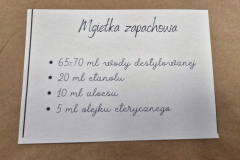 Mgiełka zapachowa
• 65÷70 ml wody destylowanej
• 20 ml etanolu
• 10 ml aloesu
• 5 ml olejku eterycznego